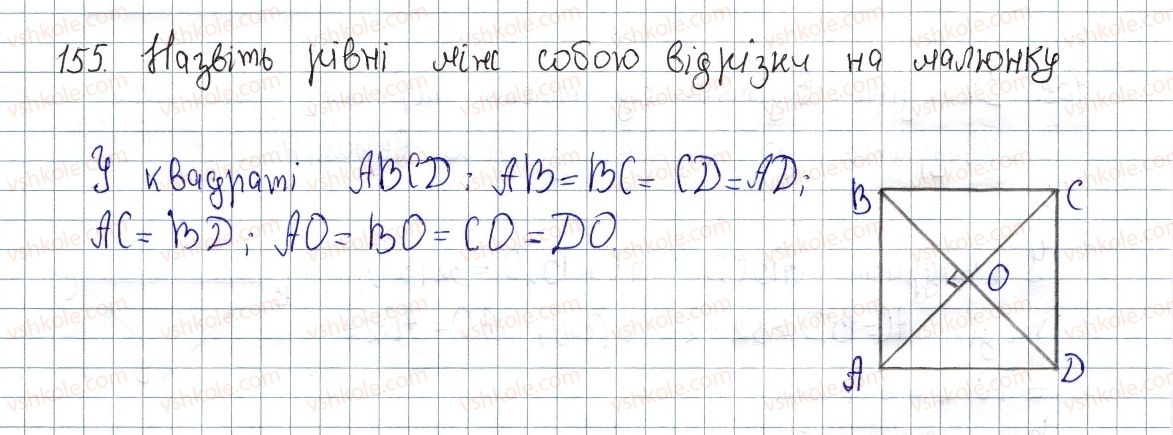 155. Назвіть рівні між собою відрізки на малюнку
У квадраті ABCD: AB = BC = CD = AD;
AC = BD; AO = BO = CO = DO.
B C
O
A D